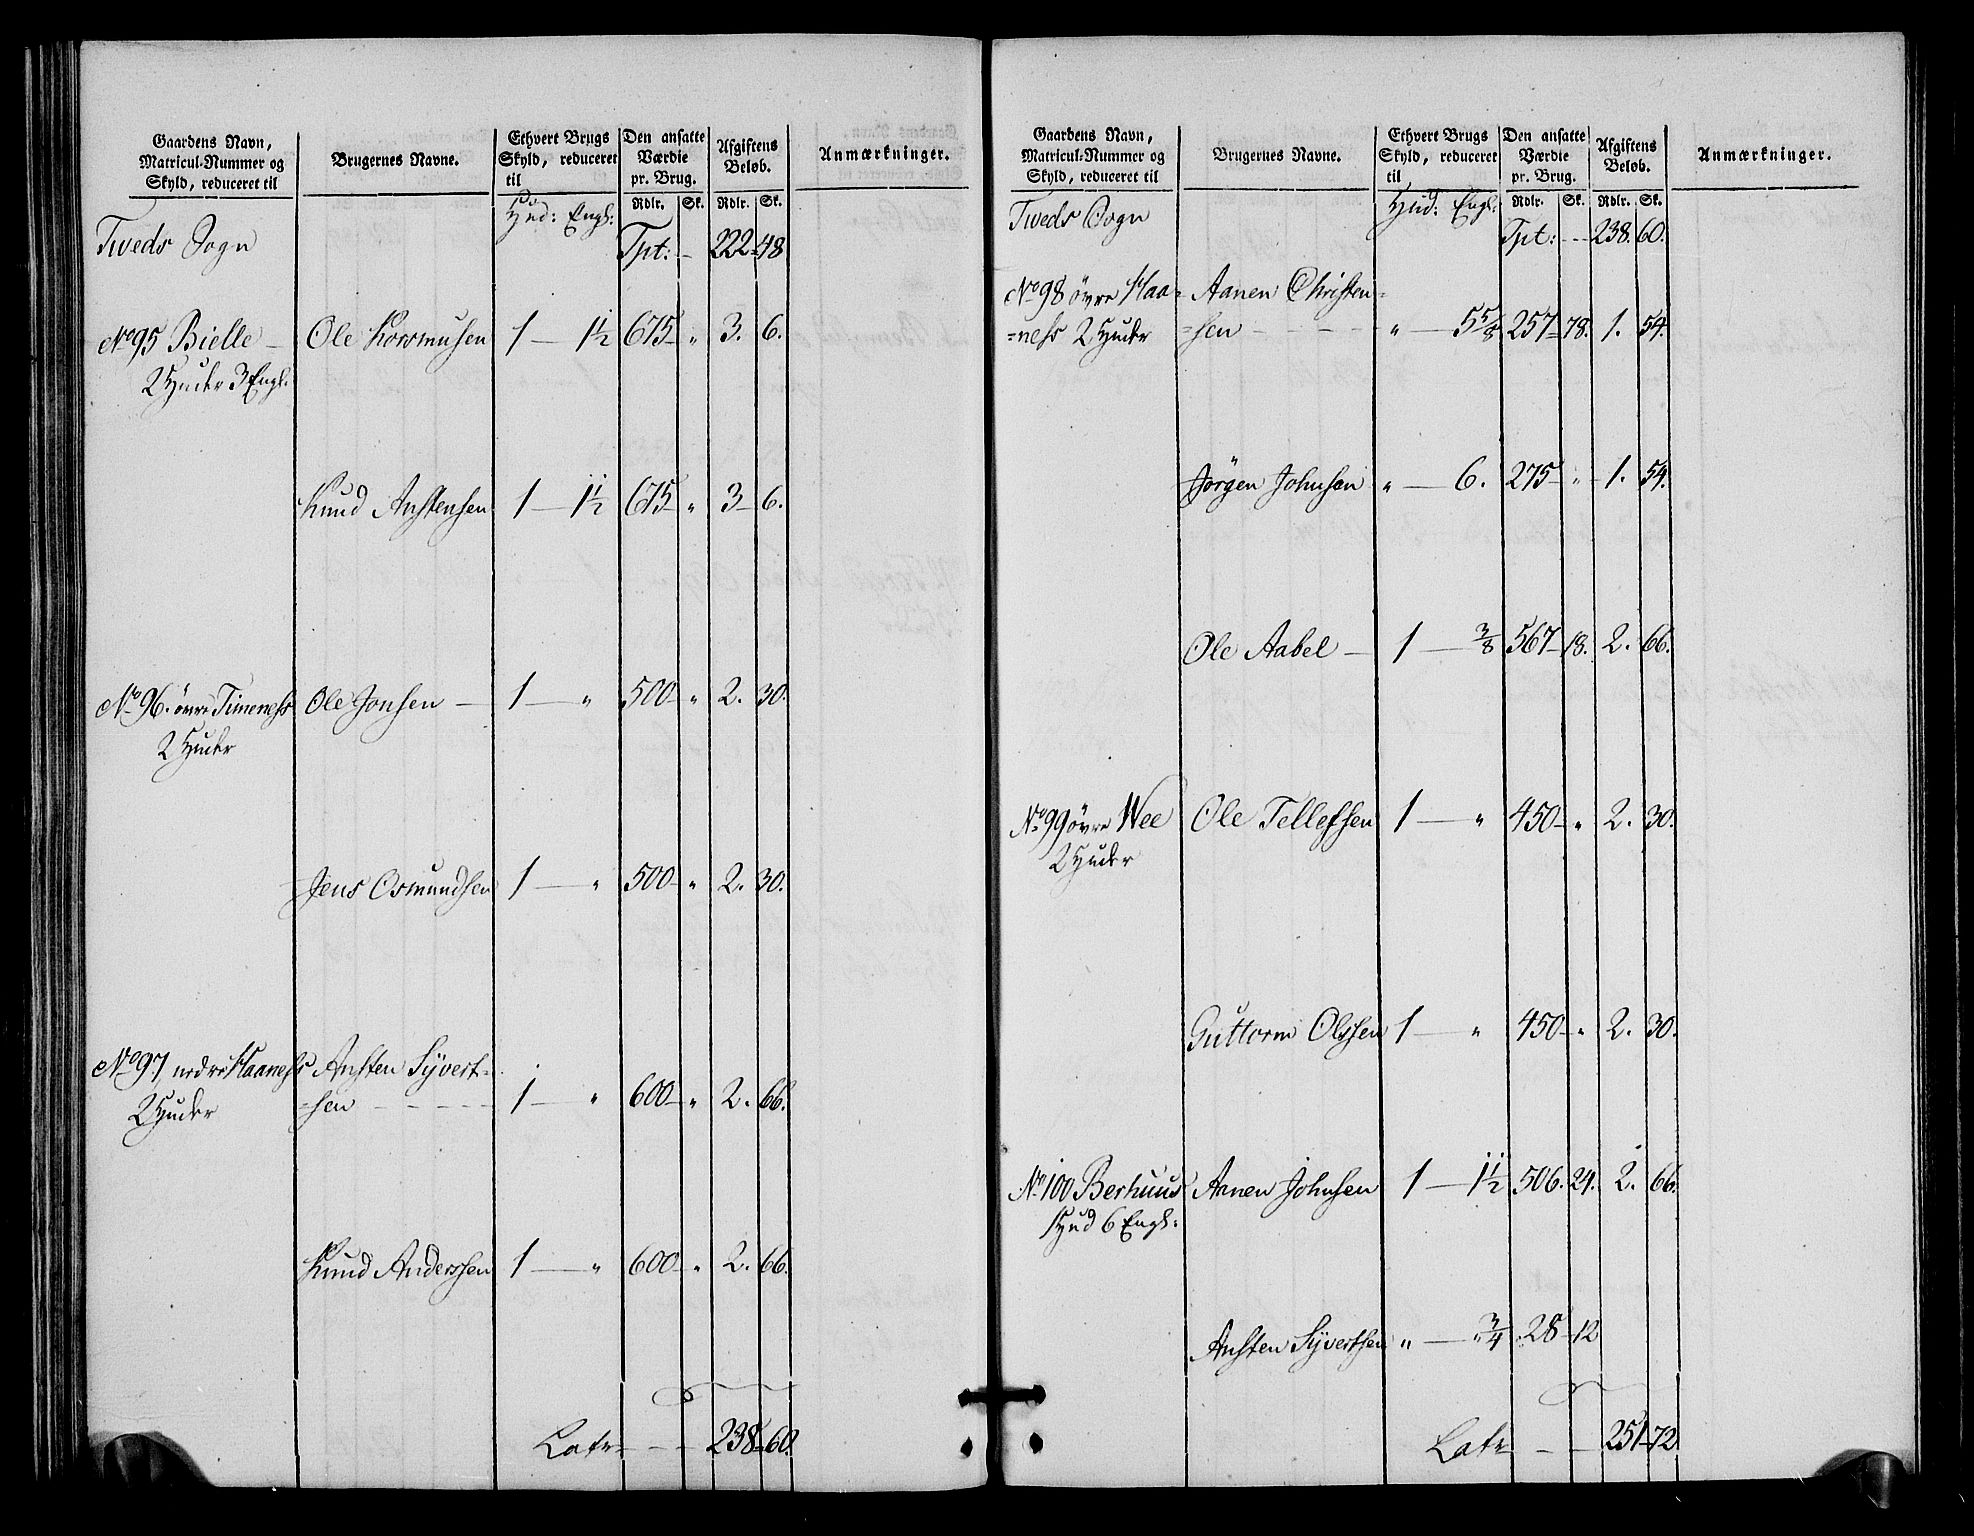 Gaardens Navn, Matricul-Nummer og Skyld, reduceret til | Brugernes Navne. | Ethvert Brugs Skyld, reduceret til | Den ansatte Værdie pr. Brug. | Afgiftens Beløb. | Anmærkninger.
Hud: Engl: | Rdlr. | Sk. | Rdlr. | Sk.
Tweds Sogn | Tpt: - 222-48
No 95 Bielle - | Ole Korsmusen | 1 - 1½ | 675 - " | 3. 6.
2 Huder 3 Engl:
Knud Anstensen | 1 - 1½ | 675 - " | 3 - 6.
No 96. övre Timeness | Ole Jonsen - | 1 - " | 500 - " | 2. 30.
2 Huder
Jens Osmundsen | 1 - " | 500 - " | 2. 30.
No 97, nedre Haaness | Ansten Syvert=
2 Huder | =sen - - - - | 1 - " | 600 - " | 2. 66.
Knud Anderssen | 1 - " | 600 - " | 2. 66.
Latr - - - 238-60.
Gaardens Navn, Matricul-Nummer og Skyld, reduceret til | Brugernes Navne. | Ethvert Brugs Skyld, reduceret til | Den ansatte Værdie pr. Brug. | Afgiftens Beløb. | Anmærkninger.
Hud: Engl: | Rdlr. | Sk. | Rdlr. | Sk.
Tweds Sogn | Tpt: - - - 238. 60.
No 98 övre Haa= | Aanen Christen=
=ness 2 Huder | =sen - - - - | " - 5⅝ | 257 - 78. | 1. 54.
Jörgen Johnsen | " - 6. | 275 - " | 1. 54.
Ole Aabel - | 1 - ⅜ | 567 - 18. | 2. 66.
No 99 övre Wee | Ole Tellefsen | 1 - " | 450 - " | 2. 30.
2 Huder
Guttorm Olssen | 1 - " | 450 - " | 2. 30.
No 100 Berhuus | Aanen Johnsen | 1 - 1½ | 506. 24. | 2. 66.
1 Hud 6 Engl:
Ansten Syvertsen | " - "¾ | 28 - 12
Latr - - 251-72